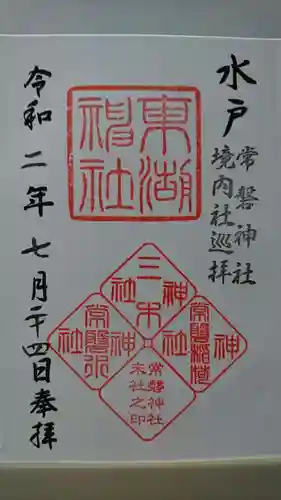 水戸
常磐神社
境内社巡拝
東湖
神社
三木
神社
常磐稲荷
神社
常磐
神社
常磐神社
末社之印
令和二年七月二十四日奉拝